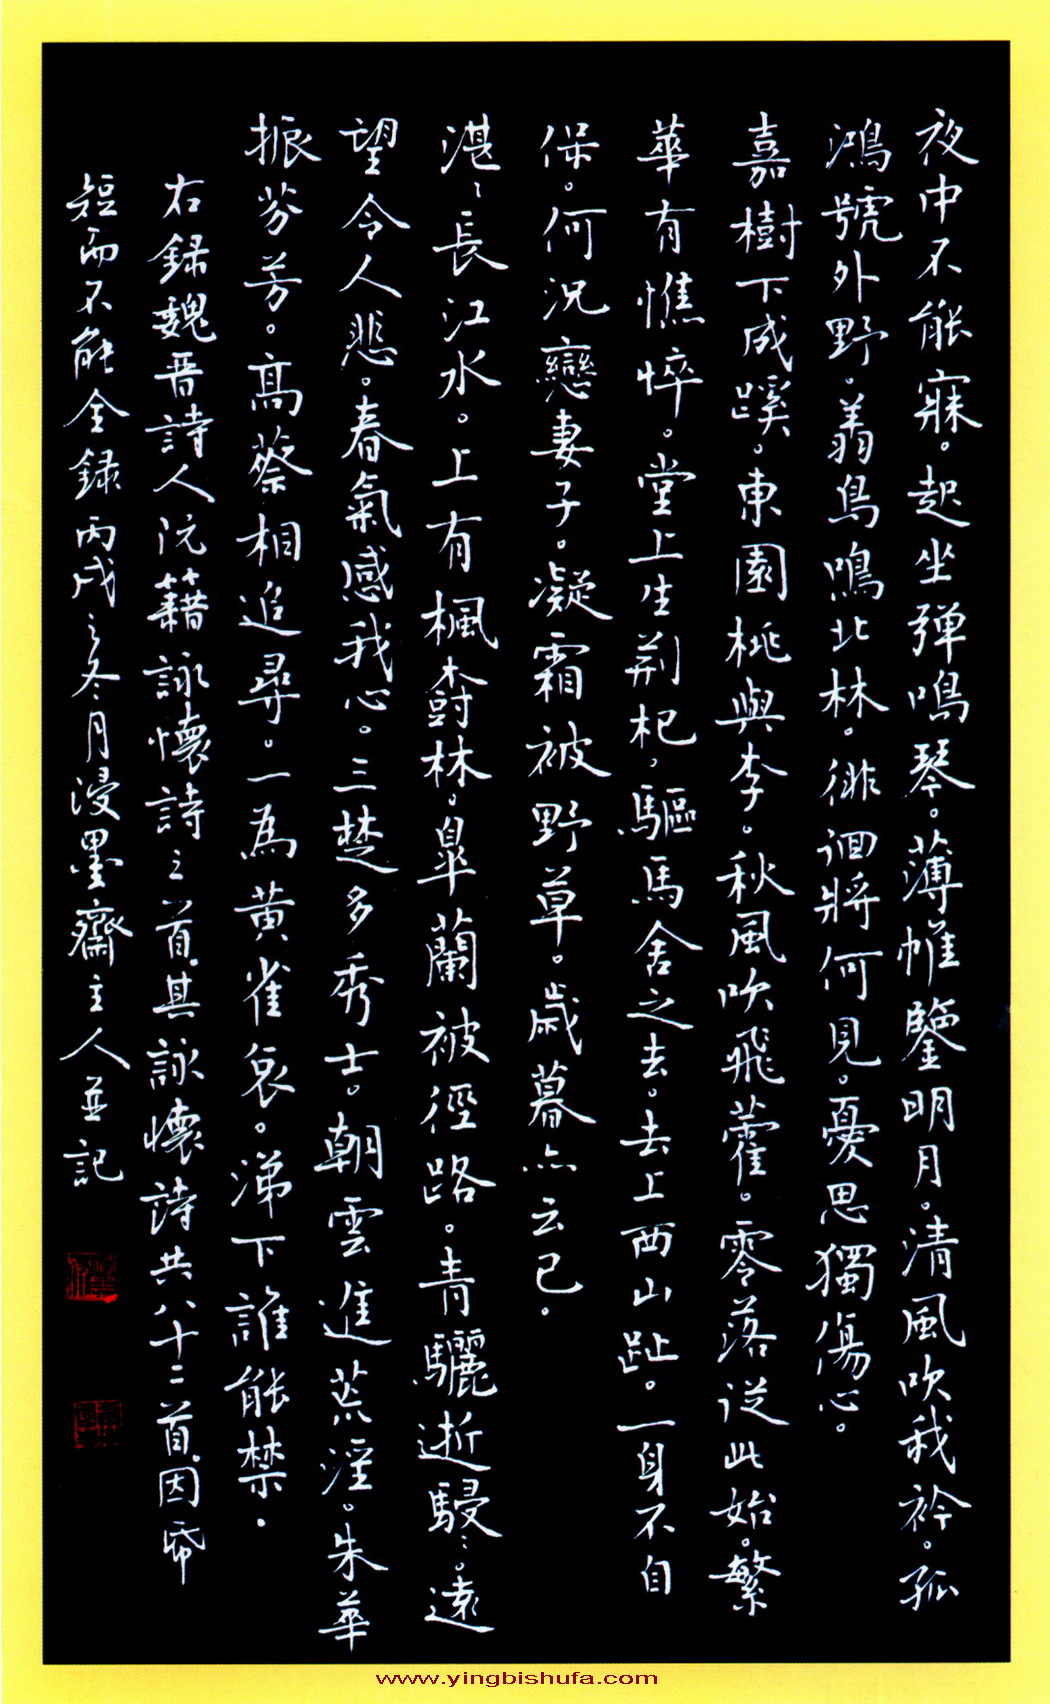 夜中不能寐。起坐弹鳴琴。薄帷鑒明月。清風吹我衿。孤
鴻號外野。翔鳥鳴北林。徘徊將何見。憂思獨傷心。
嘉樹下成蹊。東園桃與李。秋風吹飛藿。零落從此始。繁
華有憔悴。堂上生荆杞。驅馬舍之去。去上西山趾。一身不自
保。何況戀妻子。凝霜被野草。歲暮亦云已。
湛〻長江水。上有楓樹林。皐蘭被徑路。青驪逝駸〻。遠
望令人悲。春氣感我心。三楚多秀士。朝雲進荒淫。朱華
振芬芳。高蔡相追尋。一為黄雀哀。涕下誰能禁。
右録魏晋詩人阮籍詠懷詩之首。其詠懷詩共八十二首。因帋
短而不能全録丙戌之冬月浸墨齋主人並記
www.yingbishufa.com